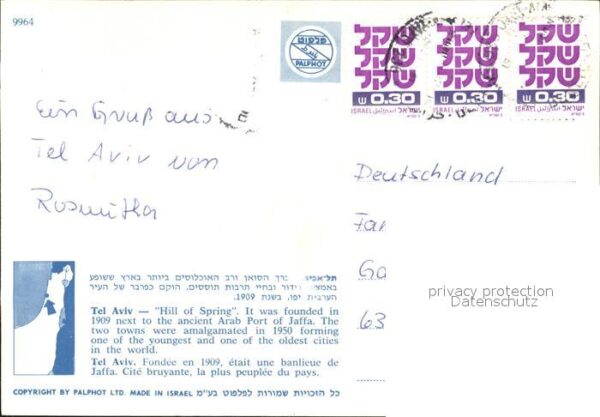 9964
פלפוט
PALPHOT
שקל שקל שקל
שקל שקל שקל
שקל שקל שקל
ש 0.30 ש 0.30 ש 0.30
ISRAEL اسرائيل ישראל ISRAEL اسرائيل ישראל ISRAEL اسرائيل ישראל
Ein Gruß aus
Tel Aviv von
Rosmitha
Deutschland
Fa
Ga
63
privacy protection
Datenschutz
תל־אביב כרך הסואן ורב האוכלוסים ביותר בארץ ששופע
באמצעי בידור ובחיי תרבות תוססים. הוקם כפרבר של העיר
הערבית יפו, בשנת 1909.
Tel Aviv — "Hill of Spring". It was founded in
1909 next to the ancient Arab Port of Jaffa. The
two towns were amalgamated in 1950 forming
one of the youngest and one of the oldest cities
in the world.
Tel Aviv. Fondée en 1909, était une banlieue de
Jaffa. Cité bruyante, la plus peuplée du pays.
COPYRIGHT BY PALPHOT LTD. MADE IN ISRAEL כל הזכויות שמורות לפלפוט בע״מ